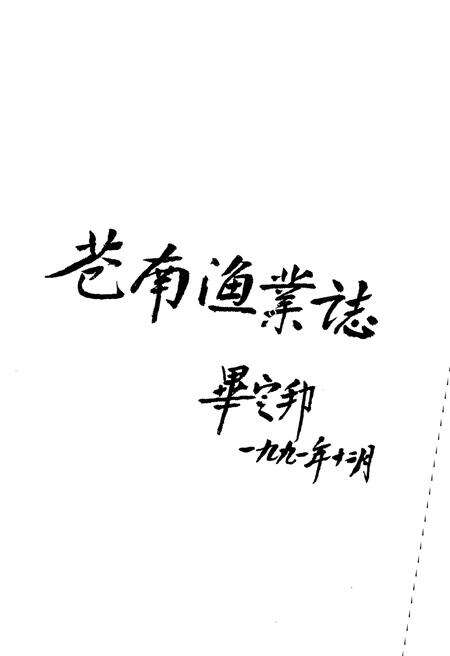 苍南渔業誌
畢定邦
一九九一年十二月